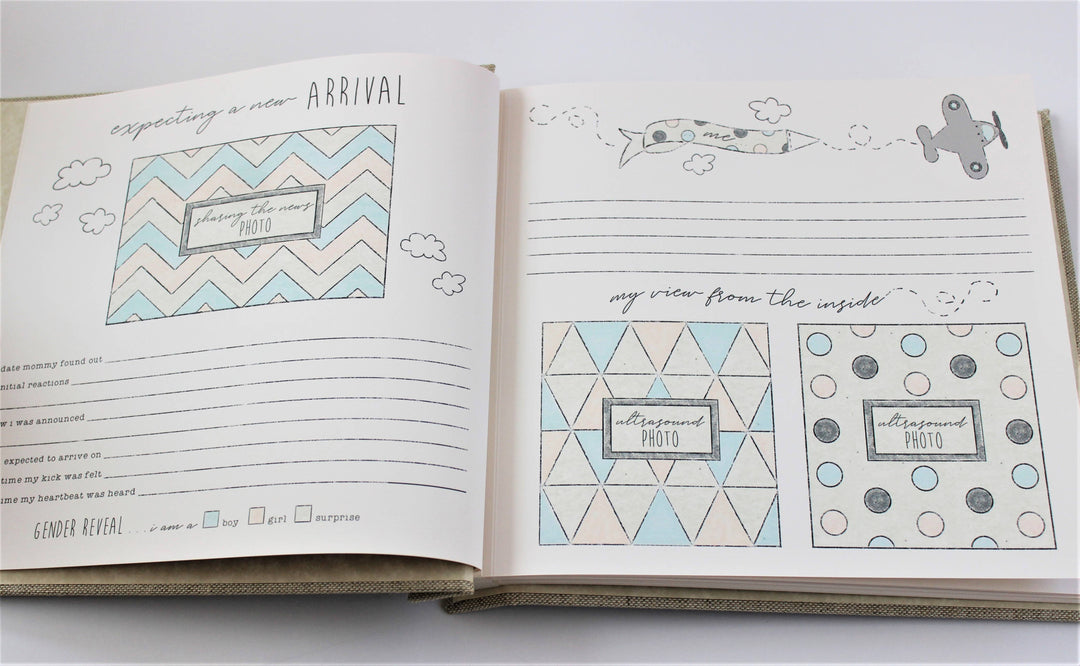 expecting a new ARRIVAL
sharing the news
PHOTO
date mommy found out
nitial reactions
w i was announced
expected to arrive on
time my kick was felt
ime my heartbeat was heard
GENDER REVEAL . . . i am a boy girl surprise
me
my view from the inside
ultrasound
PHOTO
ultrasound
PHOTO